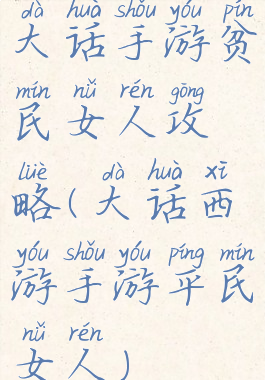 dà huà shǒu yóu pín
大话手游贫
mín nǚ rén gōng
民女人攻
lüè dà huà xī
略(大话西
yóu shǒu yóu píng mín
游手游平民
nǚ rén
女人)